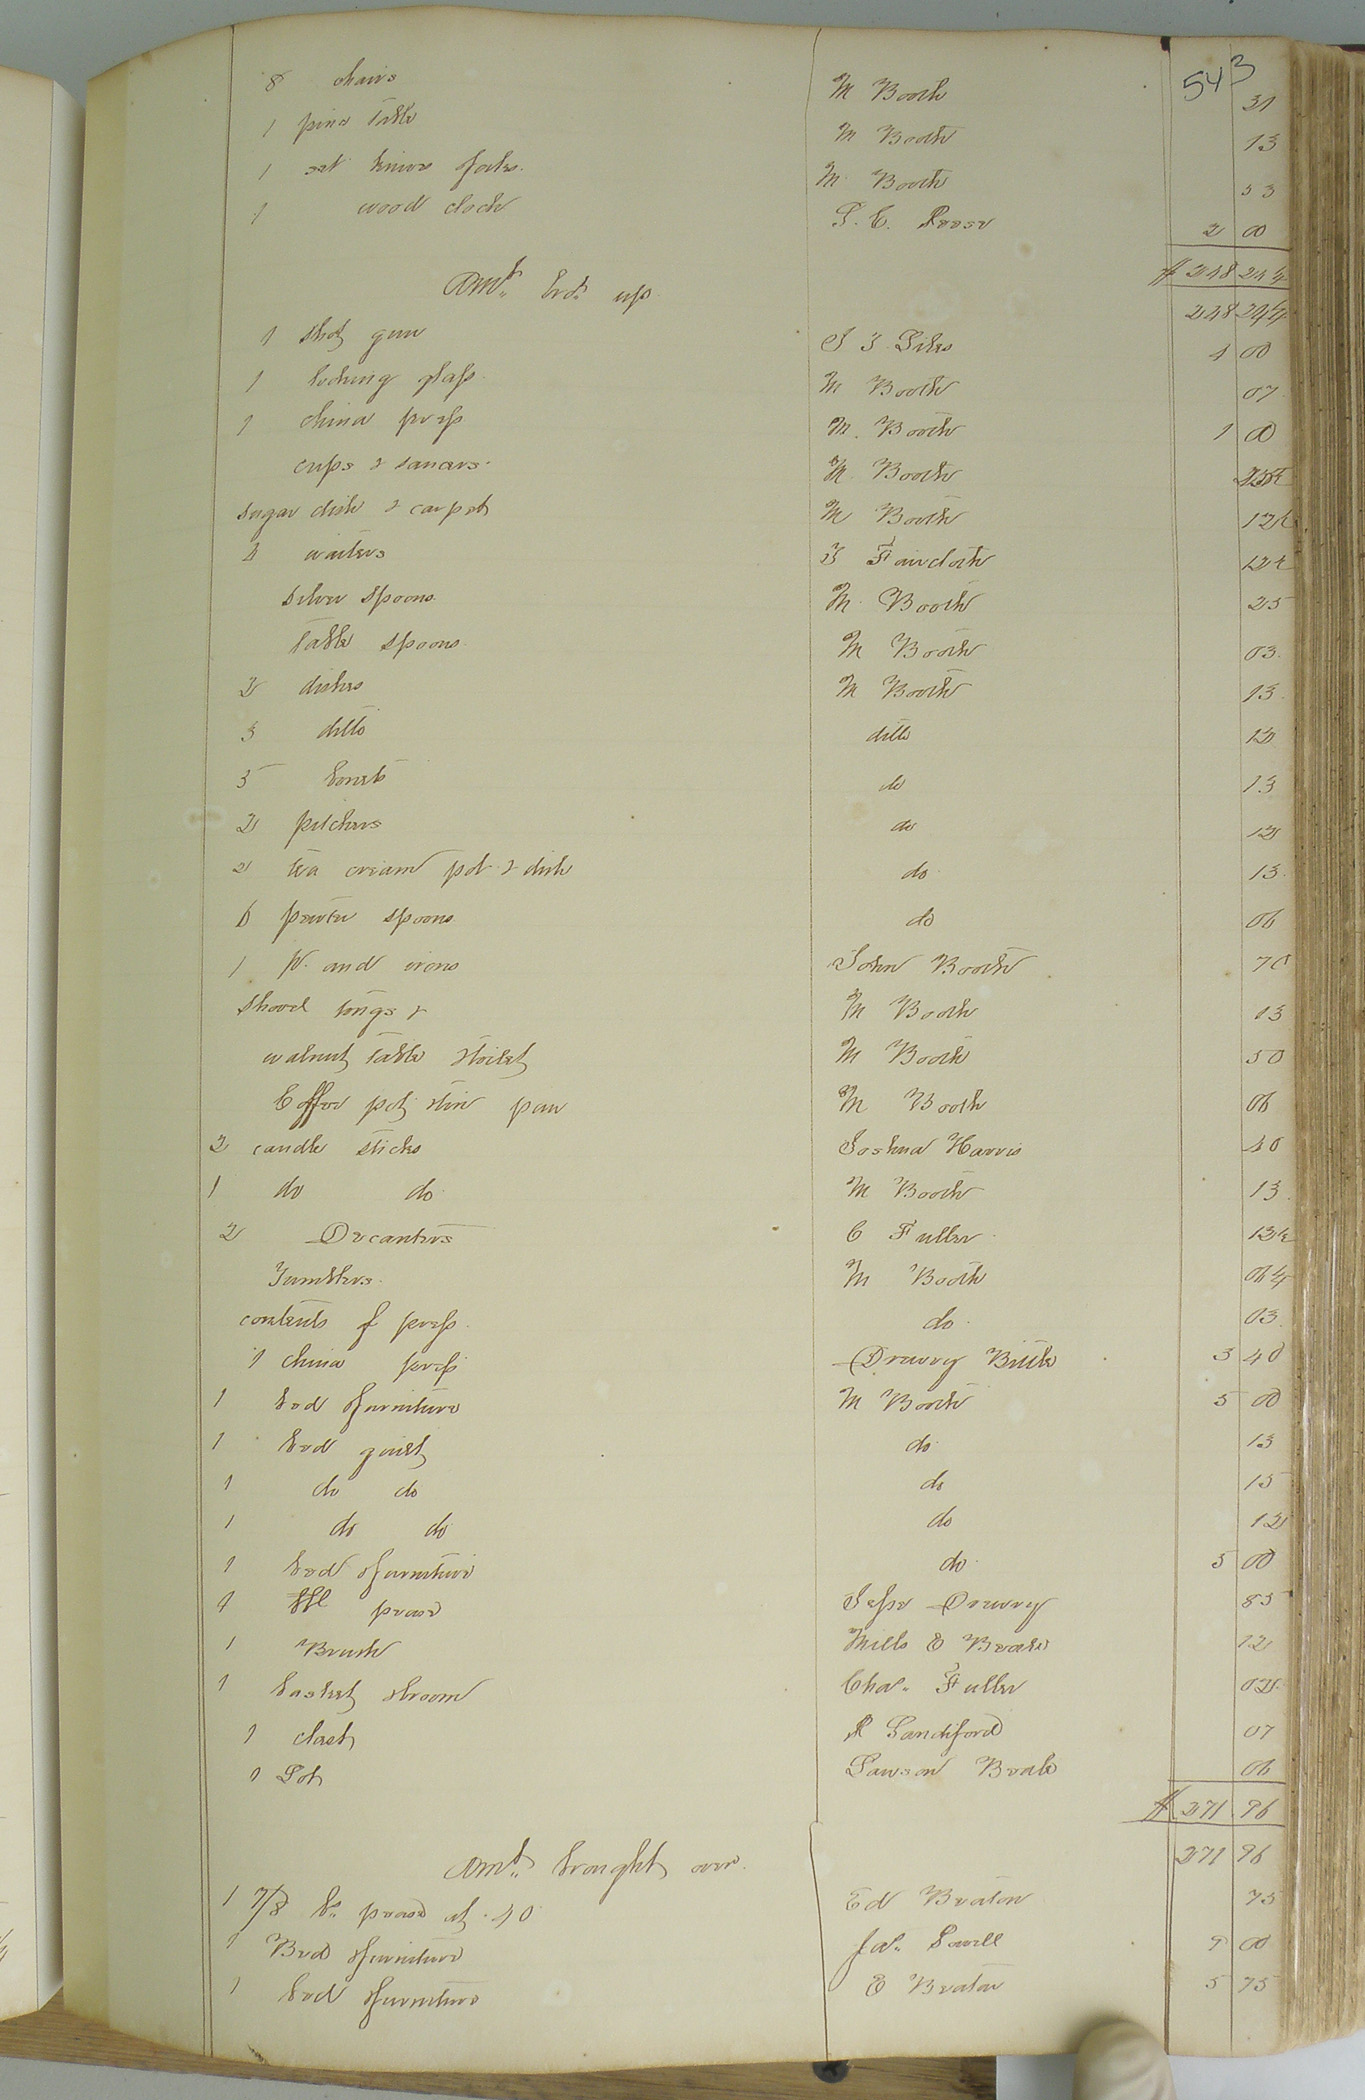 543
8 chairs M Booth 31
1 pine table M Booth 13
1 set knives & forks M Booth 53
1 wood clock 2 00
$ 248 24¼
Amt. brot. up 248 24¼
1 shot gun 00
1 looking glass M Booth 07
1 china press M. Booth 1 00
cups & saucers M Booth
sugar dish & carpet M Booth 12½
waiters Faircloth 12½
silver spoons M Booth 25
table spoons M Booth 03
2 dishes M Booth 13
3 ditto ditto 12
5 bowls do 13
2 pitchers do 12
2 tea cream pot & dish do 13
6 pewter spoons do 06
1 pr. and irons John Booth 70
shovel tongs & M Booth 13
walnut table & toilet M Booth 50
Coffee pot & tin pan M Booth 06
2 candle sticks Joshua Harris 40
1 do do M Booth 13
2 Decanters C Fuller 12½
Tumblers M Booth 06¼
contents of press do 03
1 china press Drewry 3 40
1 bed & furniture M Booth 5 00
1 bed quilt do 13
1 do do do 15
1 do do do 12
1 bed & furniture do 5 00
1 bbl peas Jesse Drewry 85
1 Brush Mills E Beale 12
1 basket & broom Chas. Fuller
1 chest Sandiford 07
1 Pot Lawson Beale 06
$ 271 96
Amt. brought over 271 96
1 7/8 b. peas at 40 Ed Beaton 75
1 Bed & furniture Jas. Sowell 9 00
1 bed & furniture E Beaton 5 75